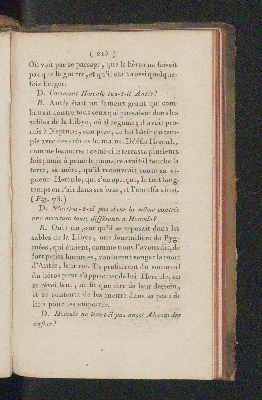 ( 213 )
On voit par ce passage, que le héros ne faisait
pas que la guerre, et qu'il était aussi quelque-
fois berger.
D. Comment Hercule tua-t-il Antée?
R. Antée était un fameux géant qui com-
battait contre tous ceux qui passaient dans les
sables de la Libye, où il régnait; il avait pro-
mis à Neptune, son père, de lui bâtir un tem-
ple avec des crânes humains. Il défia Hercule,
comme les autres: celui-ci le terrassa plusieurs
fois; mais à peine le monstre avait-il touché la
terre, sa mère, qu'il recouvrait toute sa vi-
gueur. Hercule, qui s'en aperçut, le tint long-
temps en l'air dans ses bras, et l'étouffa ainsi.
(Fig. 78.)
D. N'arriva-t-il pas dans la même contrée
une aventure toute différente à Hercule?
R. Oui: un jour qu'il se reposait dans les
sables de la Libye, une fourmilière de Pyg-
mées, qui étaient, comme nous l'avons dit, de
fort petits hommes, voulurent venger la mort
d'Antée, leur roi. Ils profitèrent du sommeil
du héros pour s'approcher de lui. Hercule, en
se réveillant, ne fit que rire de leur dessein,
et se contenta de les mettre dans sa peau de
lion pour les emporter.
D. Hercule ne tira-t-il pas aussi Alceste des
enfers?